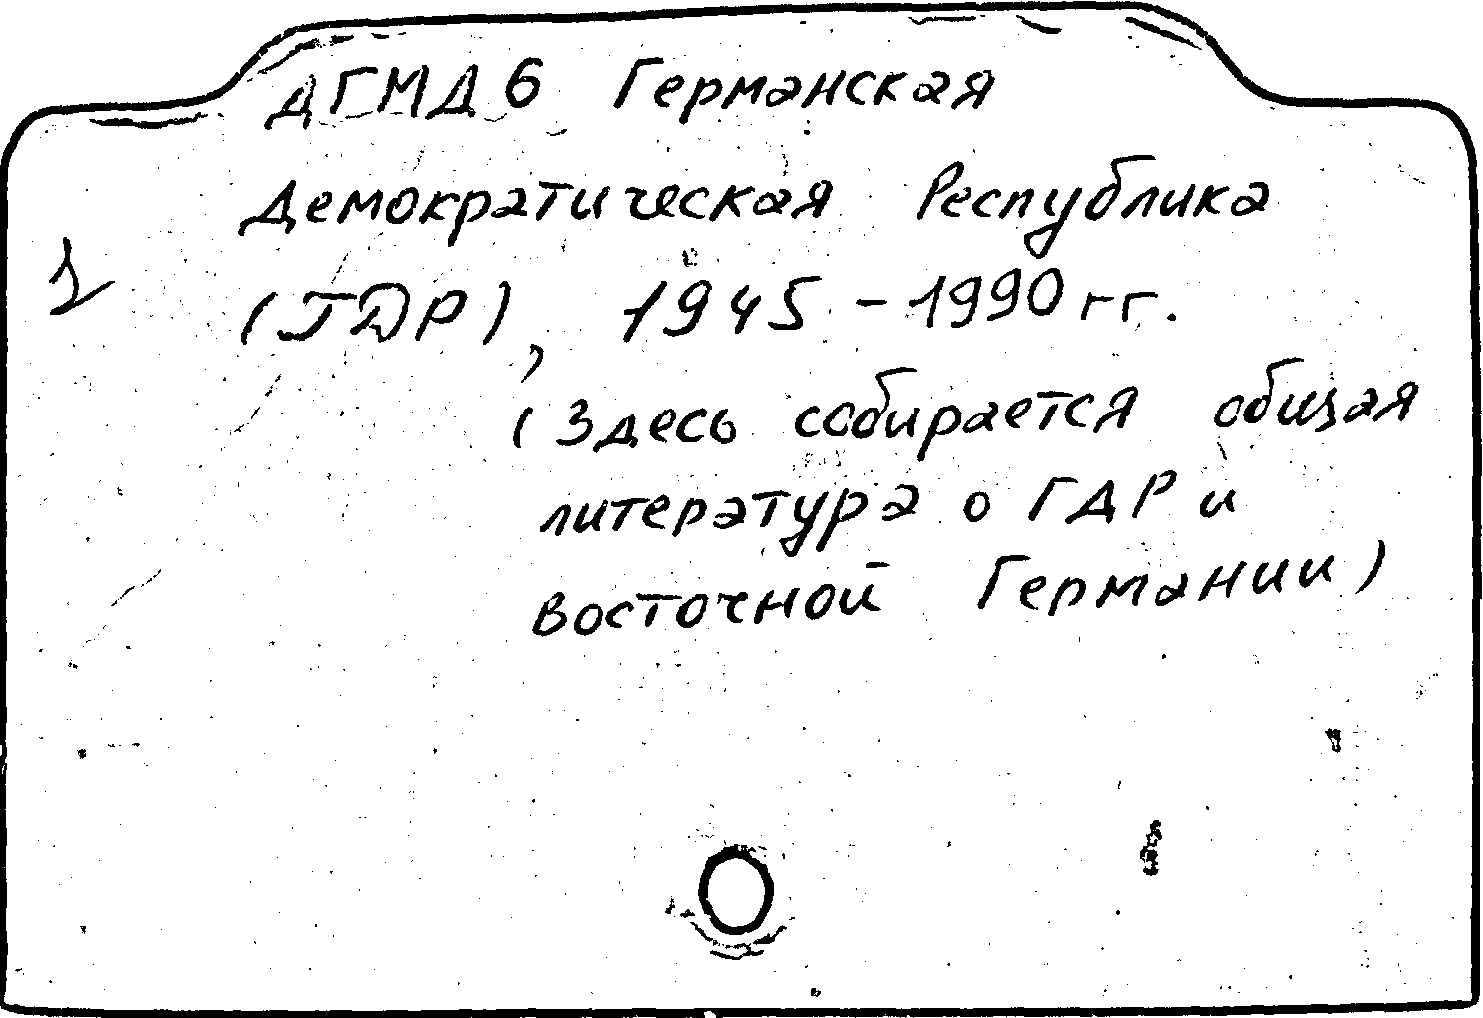 ДГМД6 Германская
Демократическая Республика
(ГДР), 1945-1990 гг.
(Здесь собирается общая
литература о ГДР и
восточной Германии)